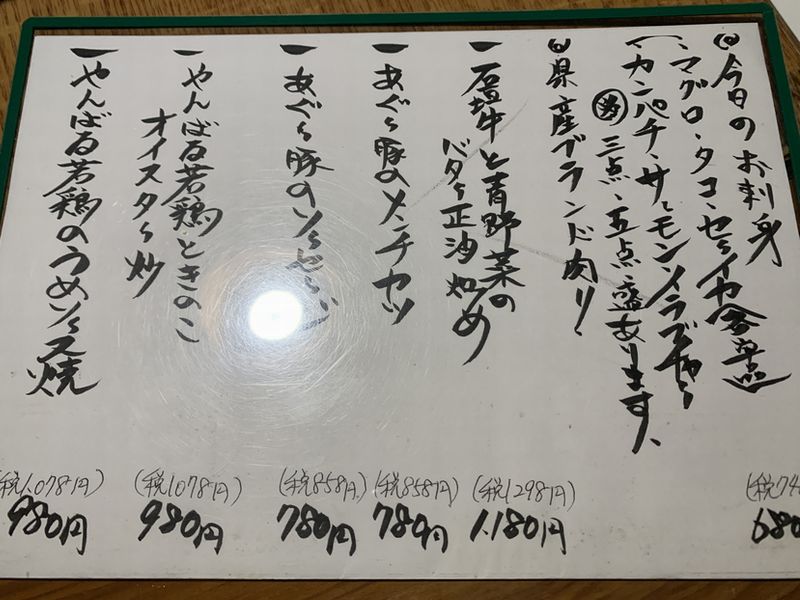 ◎今日のお刺身
(マグロ・タコ・セーイカ 各単品)
カンパチ・サーモン・イラブチャー
三点・五点盛あります、
◎県産ブランド肉!
一 石垣牛と青野菜の
バター正油炒め
一 あぐー豚のメンチカツ
一 あぐー豚のソーセージ
一 やんばる若鶏ときのこ
オイスター炒
一 やんばる若鶏のうめソース焼
(税74
680
(税1298円)
1.180円
(税858円)
780円
(税858円)
780円
(税1078円)
980円
(税1,078円)
980円